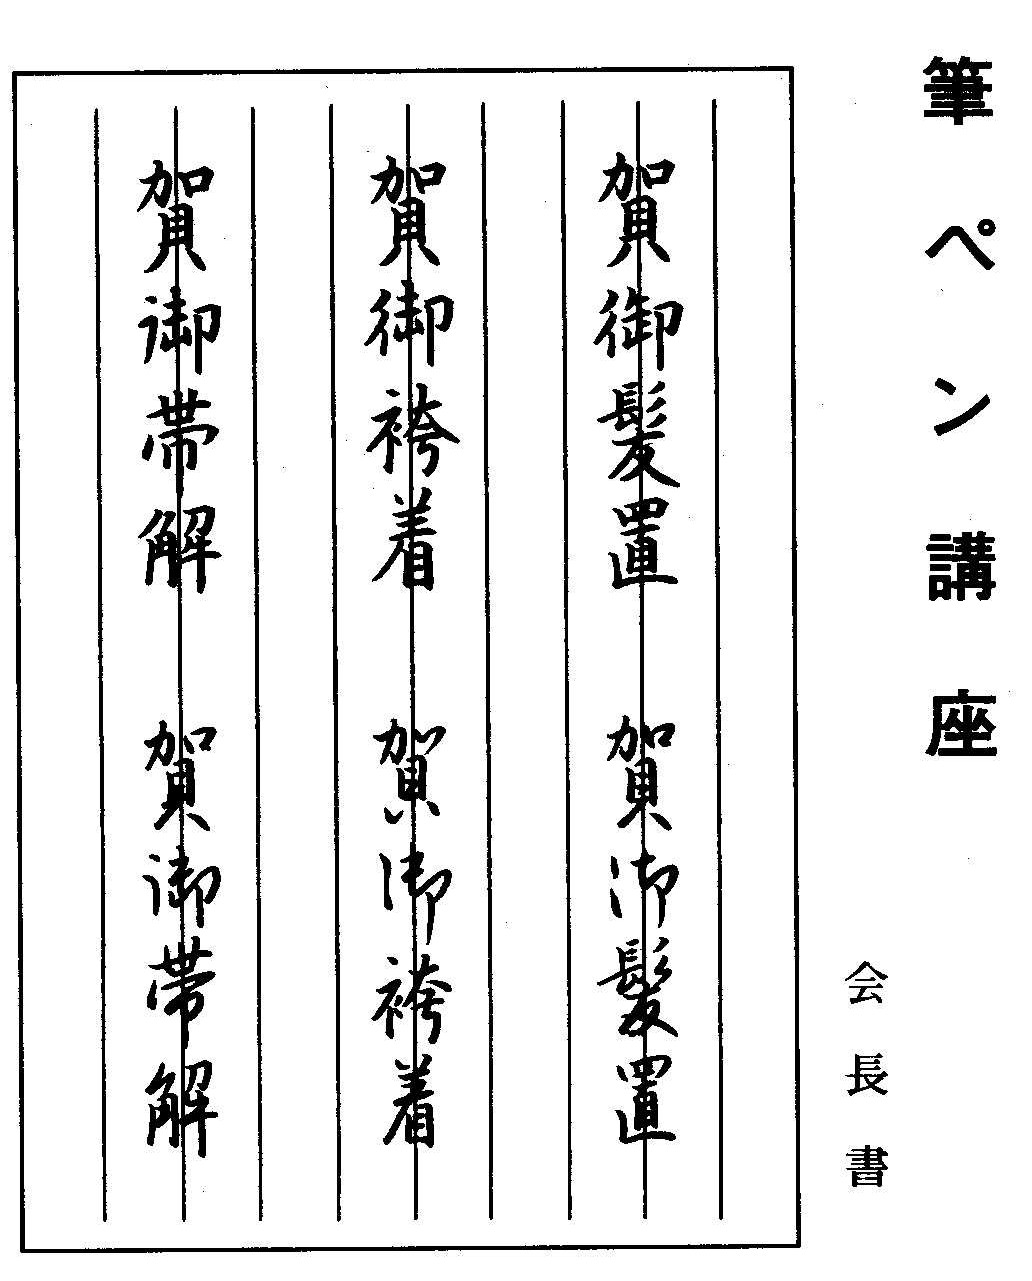 筆ペン講座
会長書
賀御髪置 賀御髪置
賀御袴着 賀御袴着
賀御帯解 賀御帯解